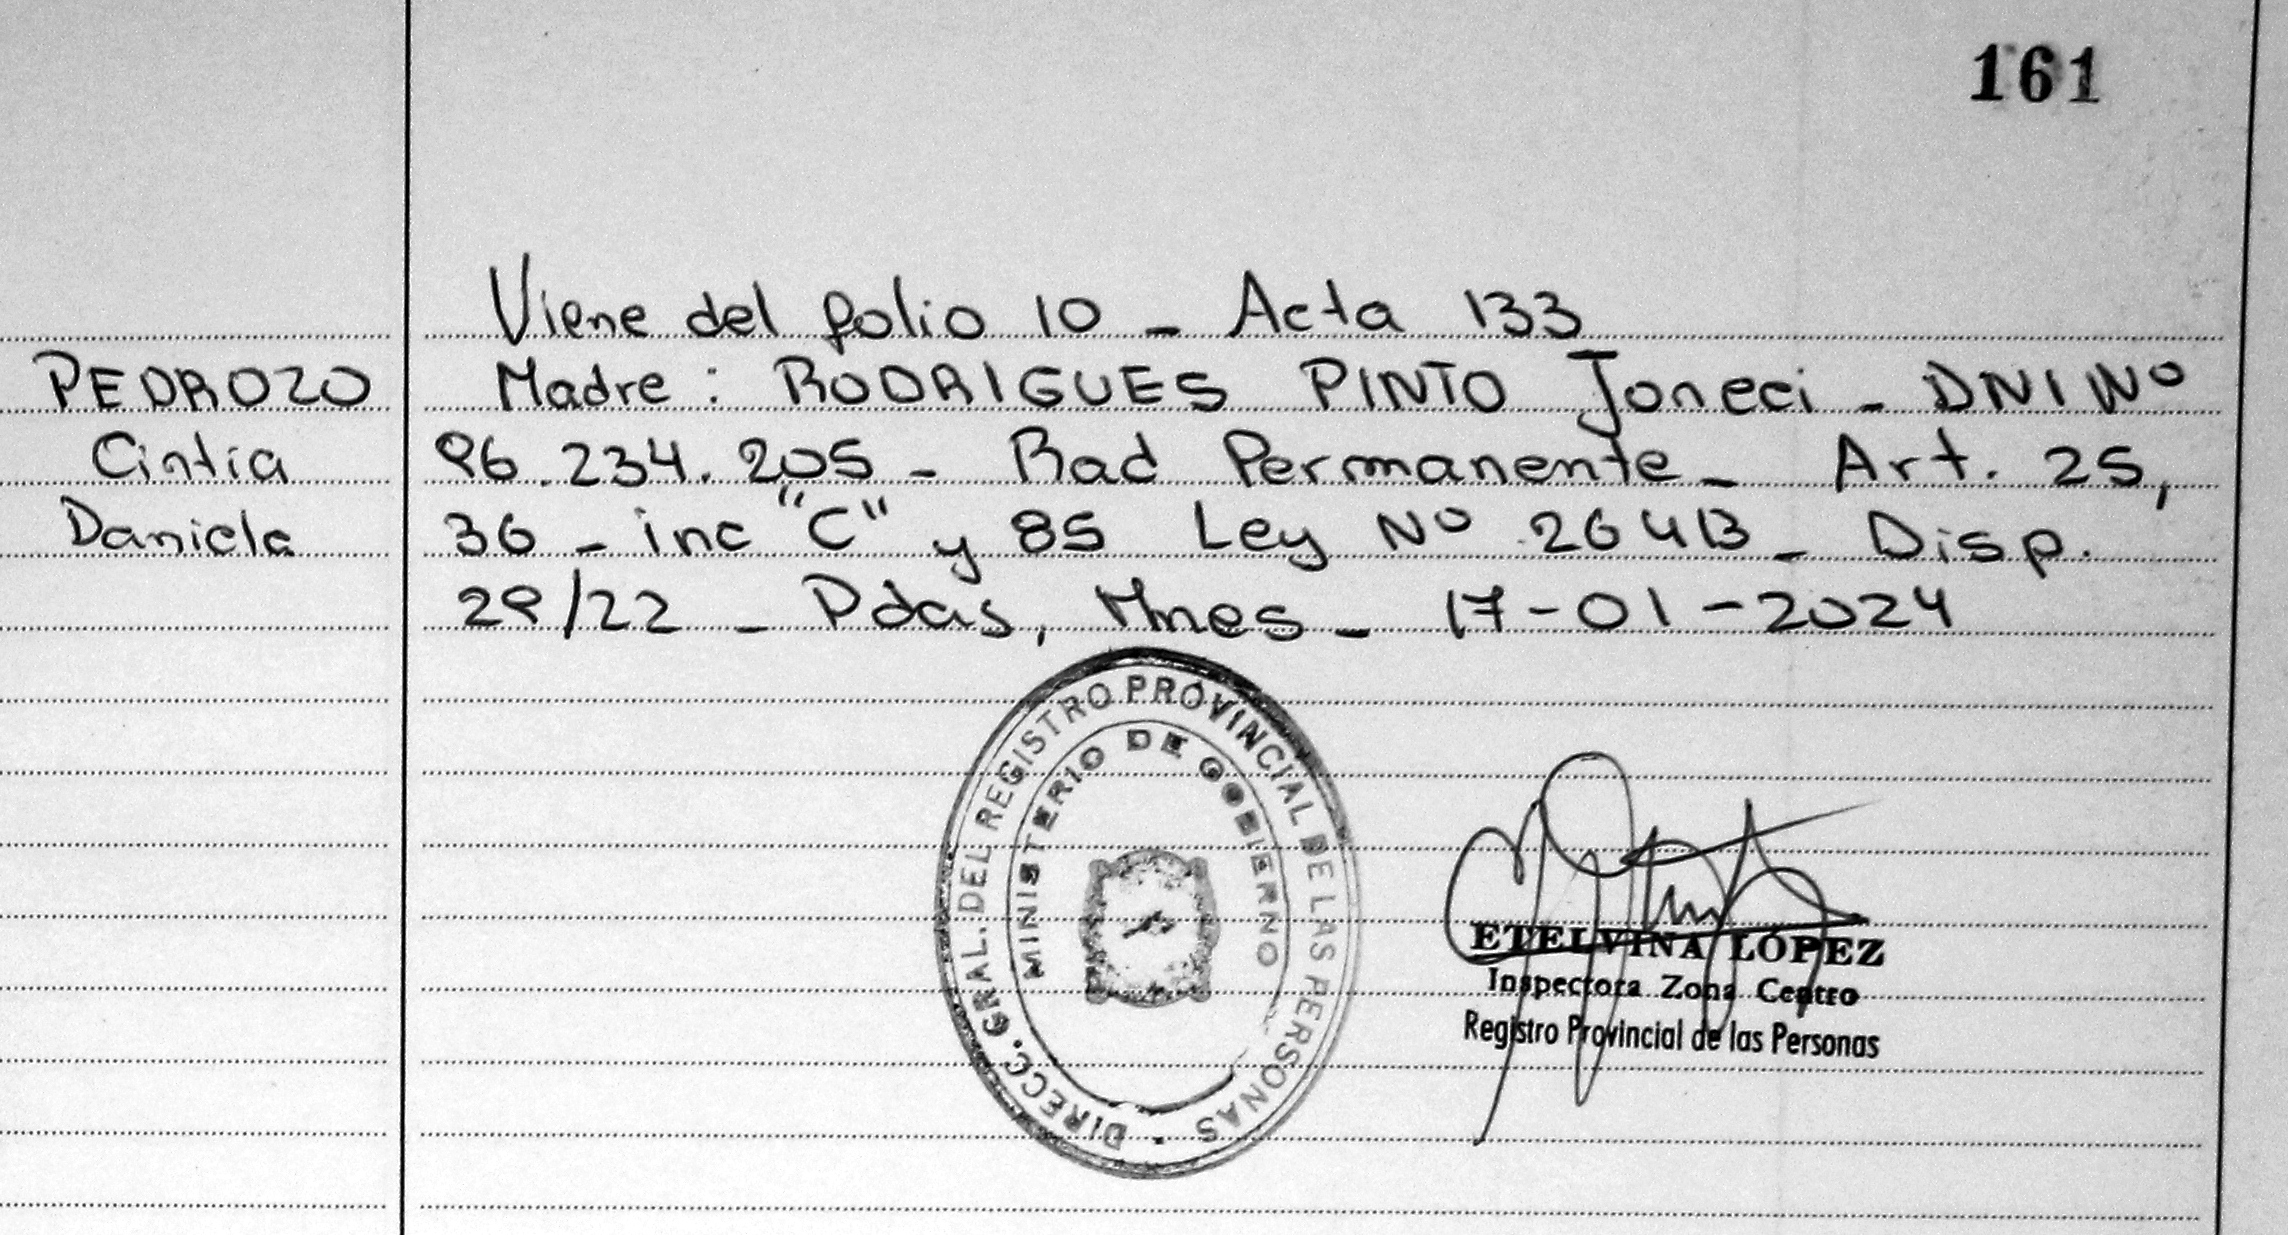 161
Viene del folio 10 - Acta 133
PEDROZO
Cintia
Daniela
Madre: RODRIGUES PINTO Joneci - DNI Nº
96.234.205 - Rad Permanente - Art. 25,
36 - inc "C" y 85 Ley Nº 26413 - Disp.
29/22 - Pdas, Mnes - 17-01-2024
DIRECC. GRAL. DEL REGISTRO PROVINCIAL DE LAS PERSONAS
MINISTERIO DE GOBIERNO
ETELVINA LÓPEZ
Inspectora Zona Centro
Registro Provincial de las Personas